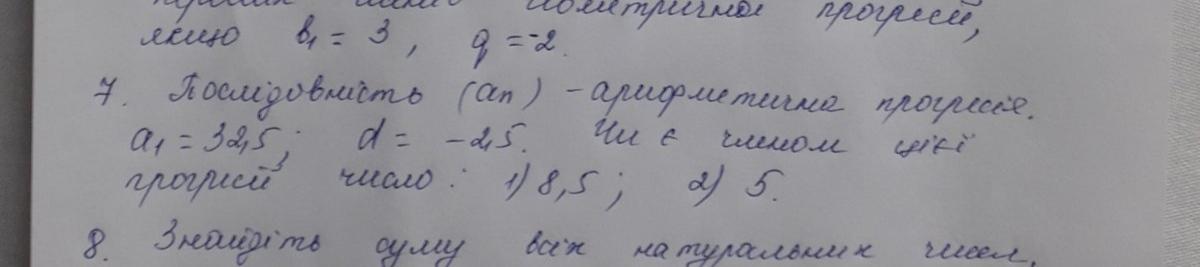 геометричної прогресії,
якщо b₁ = 3, q = -2.
7. Послідовність (an) - арифметична прогресія.
a₁ = 32,5; d = -2,5. Чи є членом цієї
прогресії число: 1) 8,5; 2) 5.
8. Знайдіть суму всіх натуральних чисел,